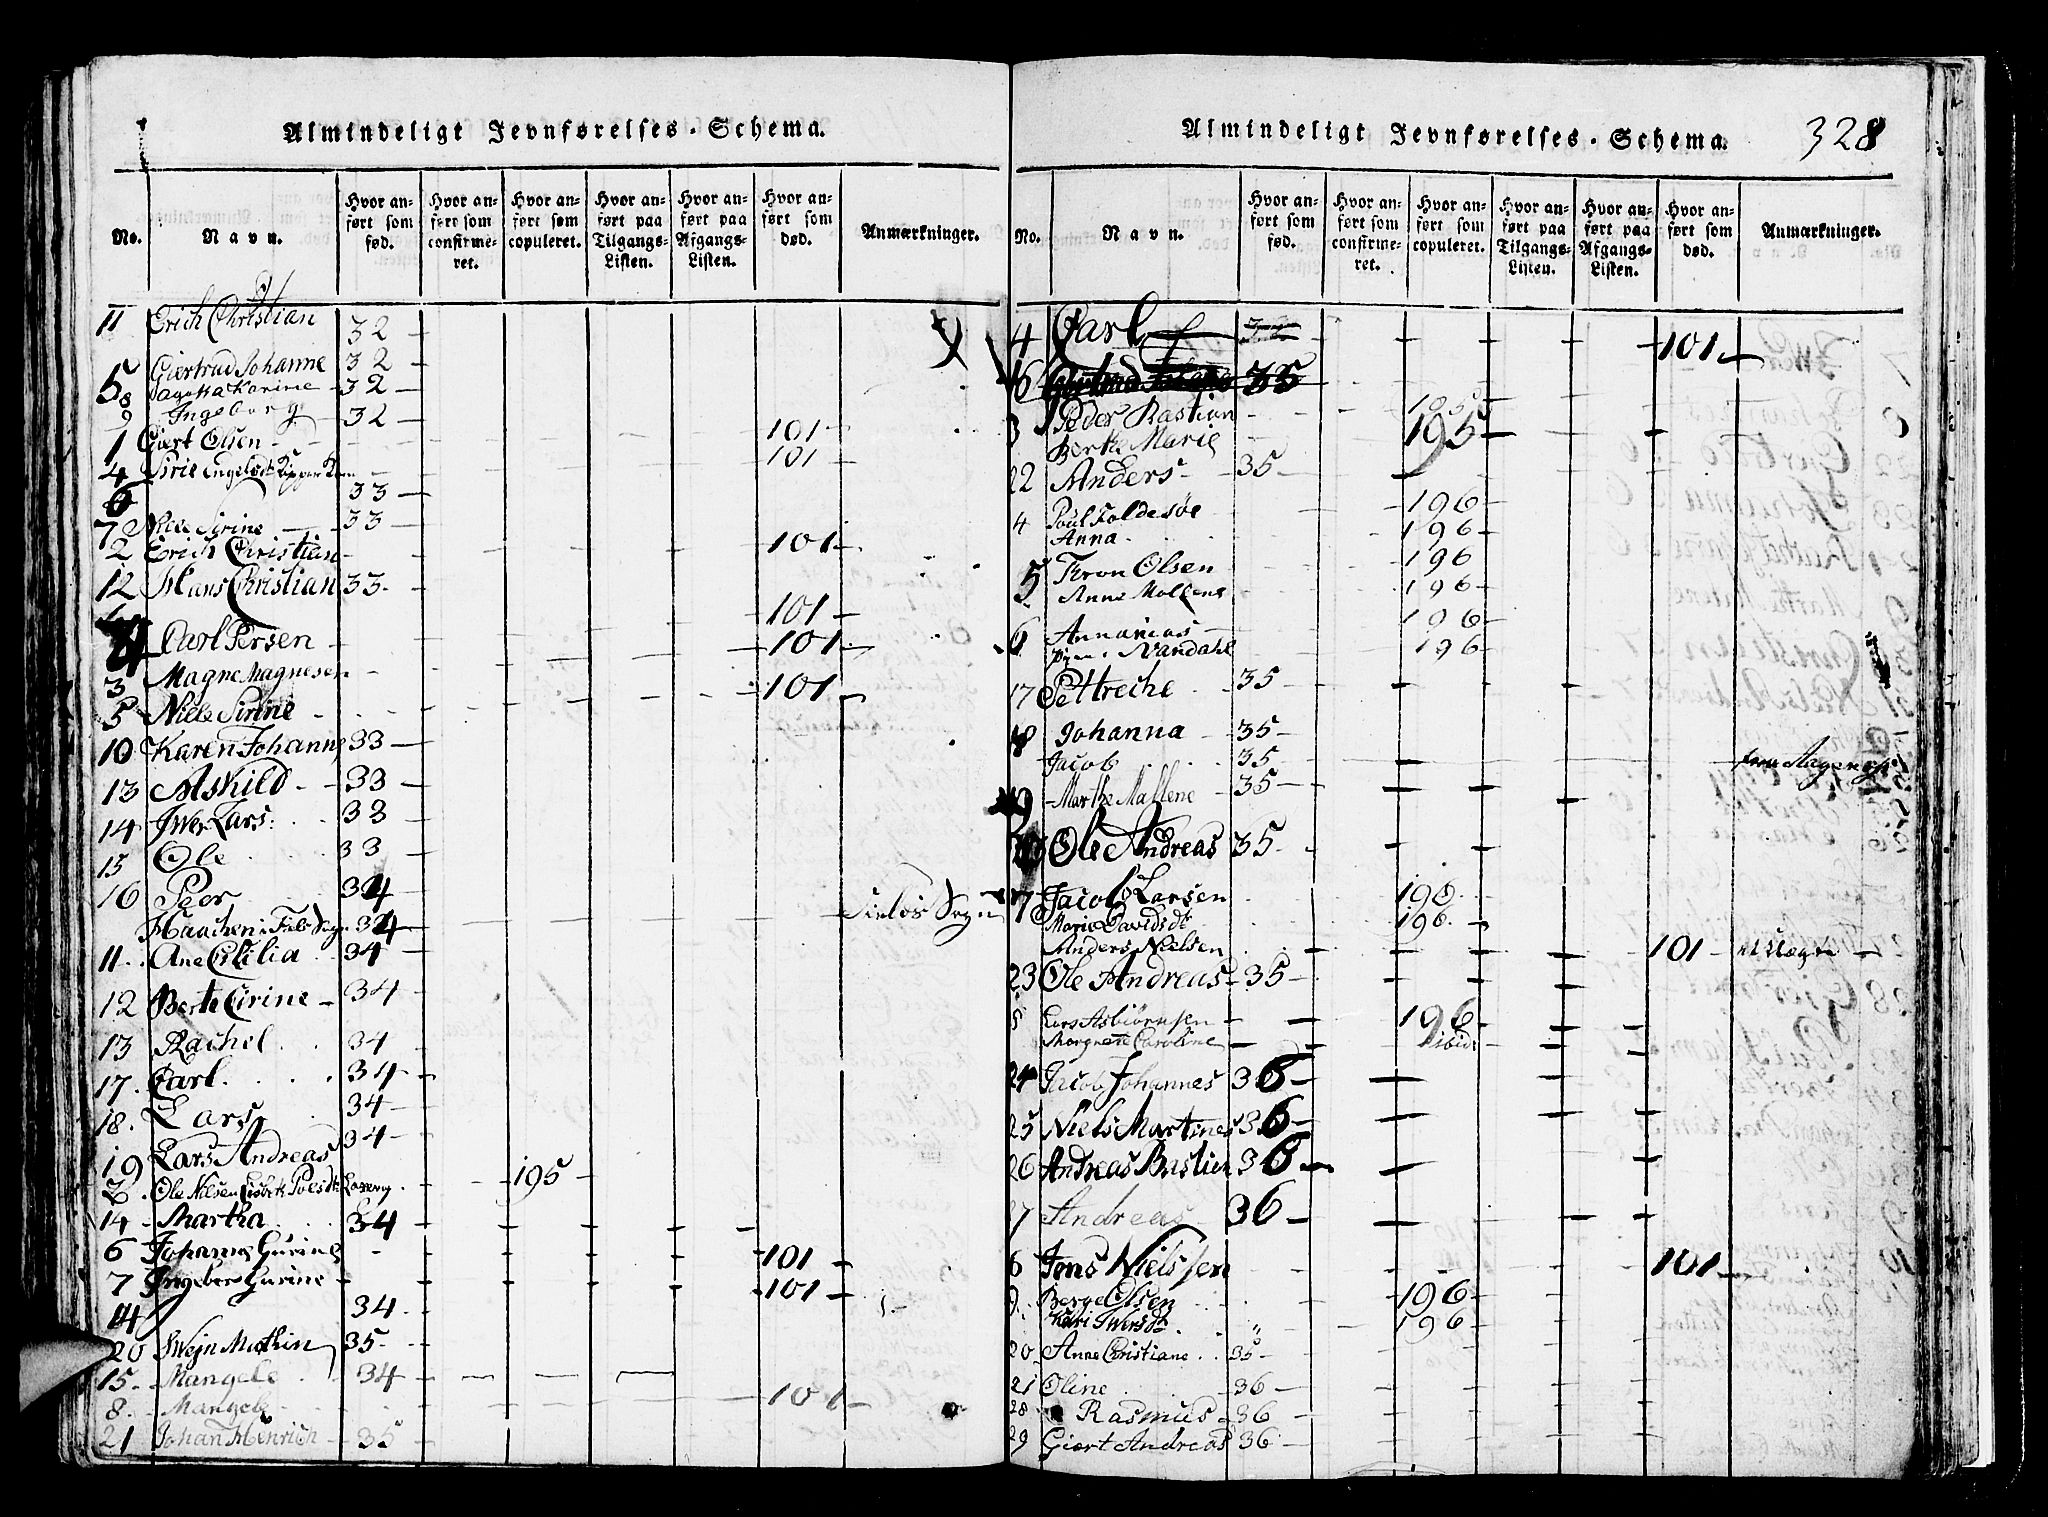 Almindeligt Jevnførelses-Schema.
No. Navn. Hvor anført som fød. Hvor anført som confirmeret. Hvor anført som copuleret. Hvor anført paa Tilgangs-Listen. Hvor anført paa Afgangs-Listen. Hvor anført som død. Anmærkninger.
11 Erich Christian 32
5 Giertrud Johanne 32
8 Karine 32
9 Ingeborg 32
1 Giert Olsen 101
4 Sirie 101
6 33
7 Niele Sirine 33
2 Erich Christian 101
12 Hans Christian 33
101
4 Carl Persen 101
3 Magne Magnesen 101
5 Niele Sirine
10 Karen Johanne 33
13 Askild 33
14 Iwer Lars: 33
15 Ole 33
16 Peer 34
Haachen 34 Sogn
11. Ane Cicilia 34
12 Berte Cirine 34
13 Rachel 34
17. Carl 34
18. Lars 34
19 Lars Andreas 34
2. Ole Nilsen 195
14 Martha 34
6 Johanne Gurine 101
7 Ingebor Gurine 101
14 34
20 Swejn Mathin 35
15. Mangele 34
8. Mangele 101
21 Johan Henrich 35
Almindeligt Jevnførelses-Schema. 328
No. Navn. Hvor anført som fød. Hvor anført som confirmeret. Hvor anført som copuleret. Hvor anført paa Tilgangs-Listen. Hvor anført paa Afgangs-Listen. Hvor anført som død. Anmærkninger.
4 Carl 101
16 35
3 Peder Bastian 195
Berthe Marie 195
22 Anders 35
4 Poul Foldesøe 196
Anna 196
5 Tron Olsen 196
Anne Mollene 196
6 Annanias 196
Nandahl 196
17 Pettreche 35
18 Johanna 35
Jacob 35
19 Marthe Mallene 35
Ole Andreas 35
7 Jacob Larsen 196
Marie Davidsdt 196
Anders Nielsen 101
23 Ole Andreas 35
8 Lars Asbiørnsen 196
Margrete Caroline ibid
24 Jacob Johannes 36
25 Niels Martines 36
26 Andreas Bastian 36
27 Andreas 36
6 Jens Nielssen 101
9. Berge Olsen 196
Kari Iwersdt. 196
20 Anne Christiane 35
21 Oline 36
28 Rasmus 36
29 Giert Andreas 36